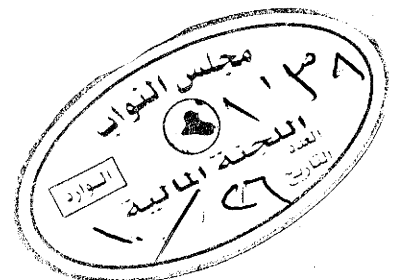 مجلس النواب
اللجنة المالية
الوارد
العدد
التاريخ
١٠/٢٦